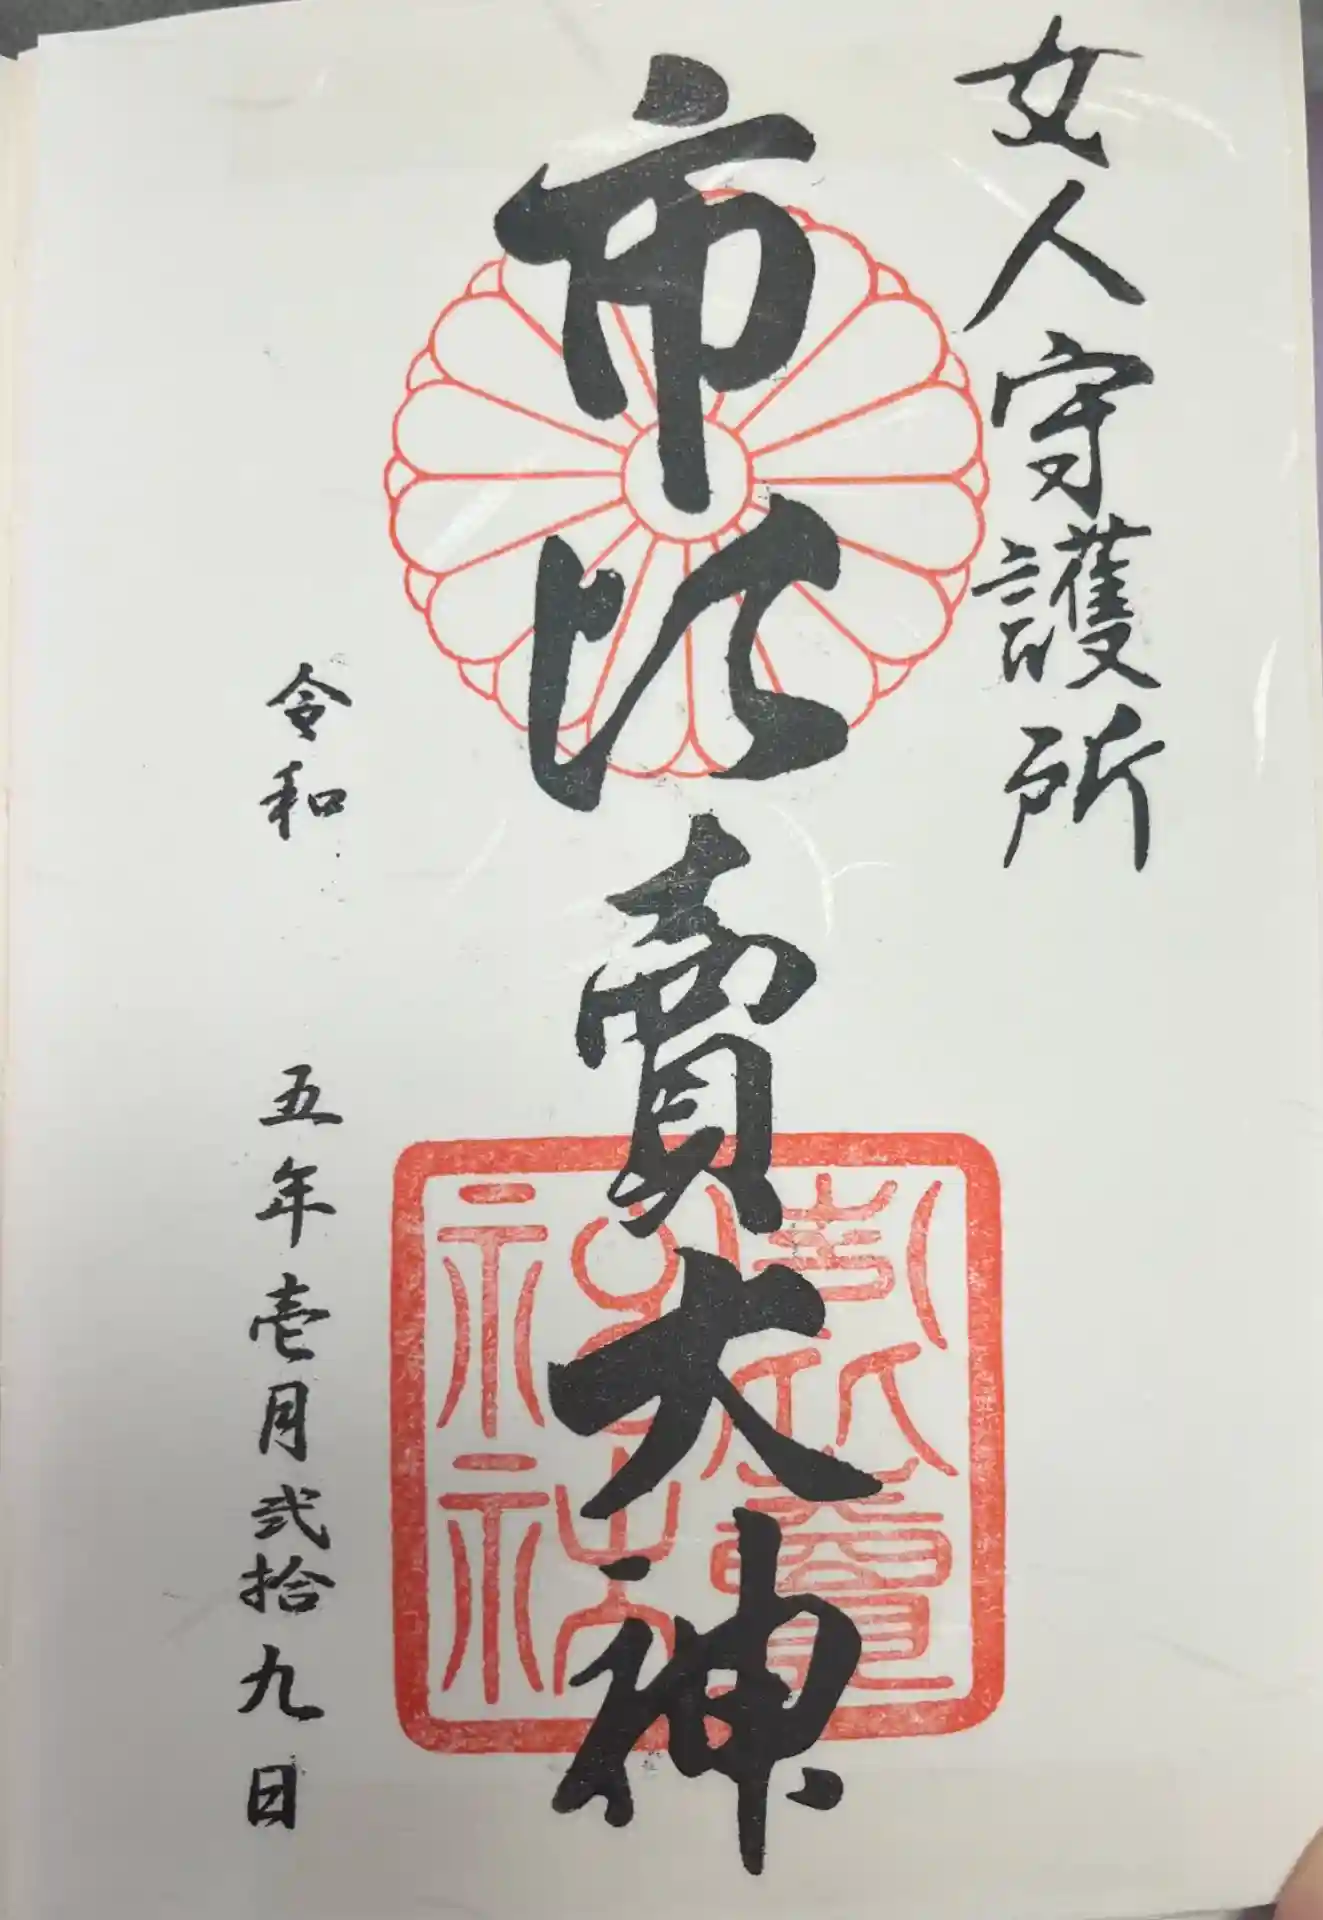 女人守護所
市比賣大神
市比賣神社
令和 五年壱月弐拾九日